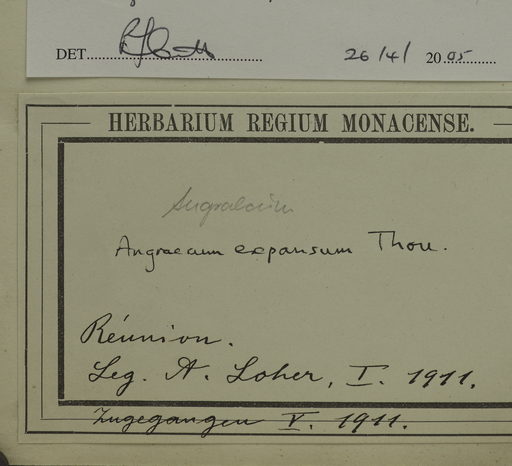 DET. 26/4/ 20 05
HERBARIUM REGIUM MONACENSE.
Angraecum
Angraecum expansum Thou.
Réunion.
Leg. A. Loher, I. 1911.
Zugegangen V. 1911.